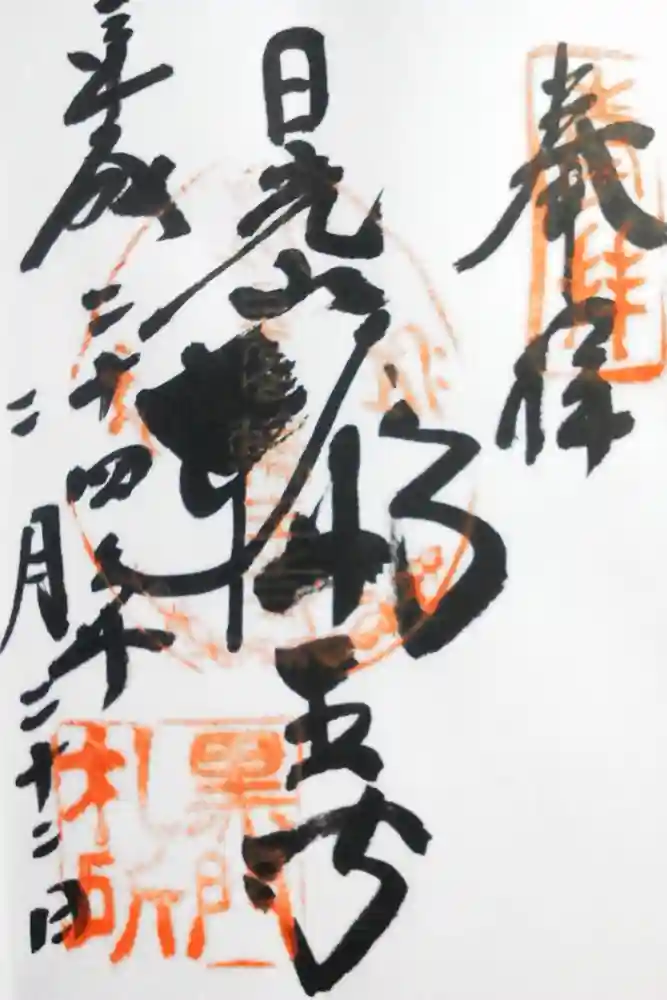 奉拝
日光山
輪王寺
平成二十四年
二月二十二日
黒門
札所